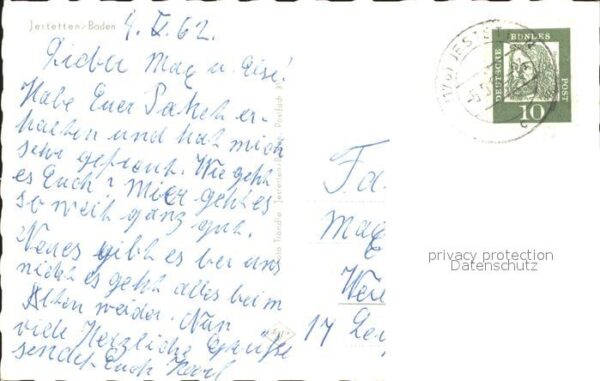 Jestetten/Baden
4. V. 62.
Lieber Max u. Lise!
Habe Euer Paket er-
halten und hat mich
sehr gefreut. Wie geht
es Euch? Mier geht es
so weit ganz gut.
Neues gibt es bei uns
nicht es geht alles beim
Alten weider. Nun
viele Herzliche Grüsse
sendet Euch Karl
Fa.
Max
17
DEUTSCHE BUNDESPOST
10
JESTET
privacy protection
Datenschutz